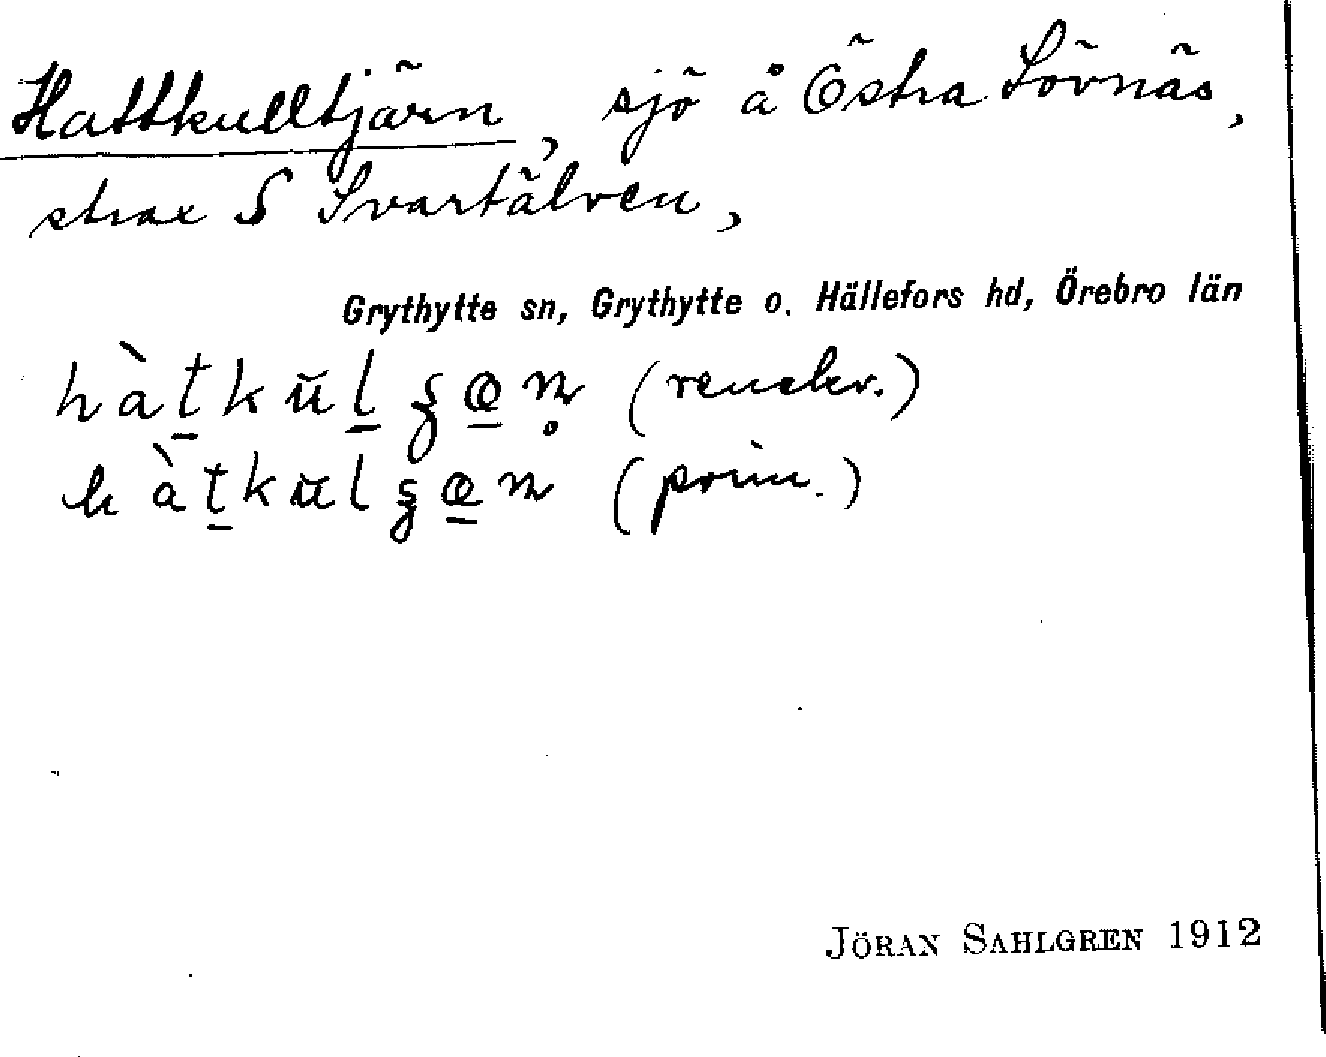 Hattkulltjärn, sjö å Östra Lövnäs,
strax S Svartälven,
Grythytte sn, Grythytte o. Hällefors hd, Örebro län
hàt̲kŭl̲ʒœ̲n̥ (renskr.)
hàt̲kŭlʒœ̲n (prim.)
JÖRAN SAHLGREN 1912